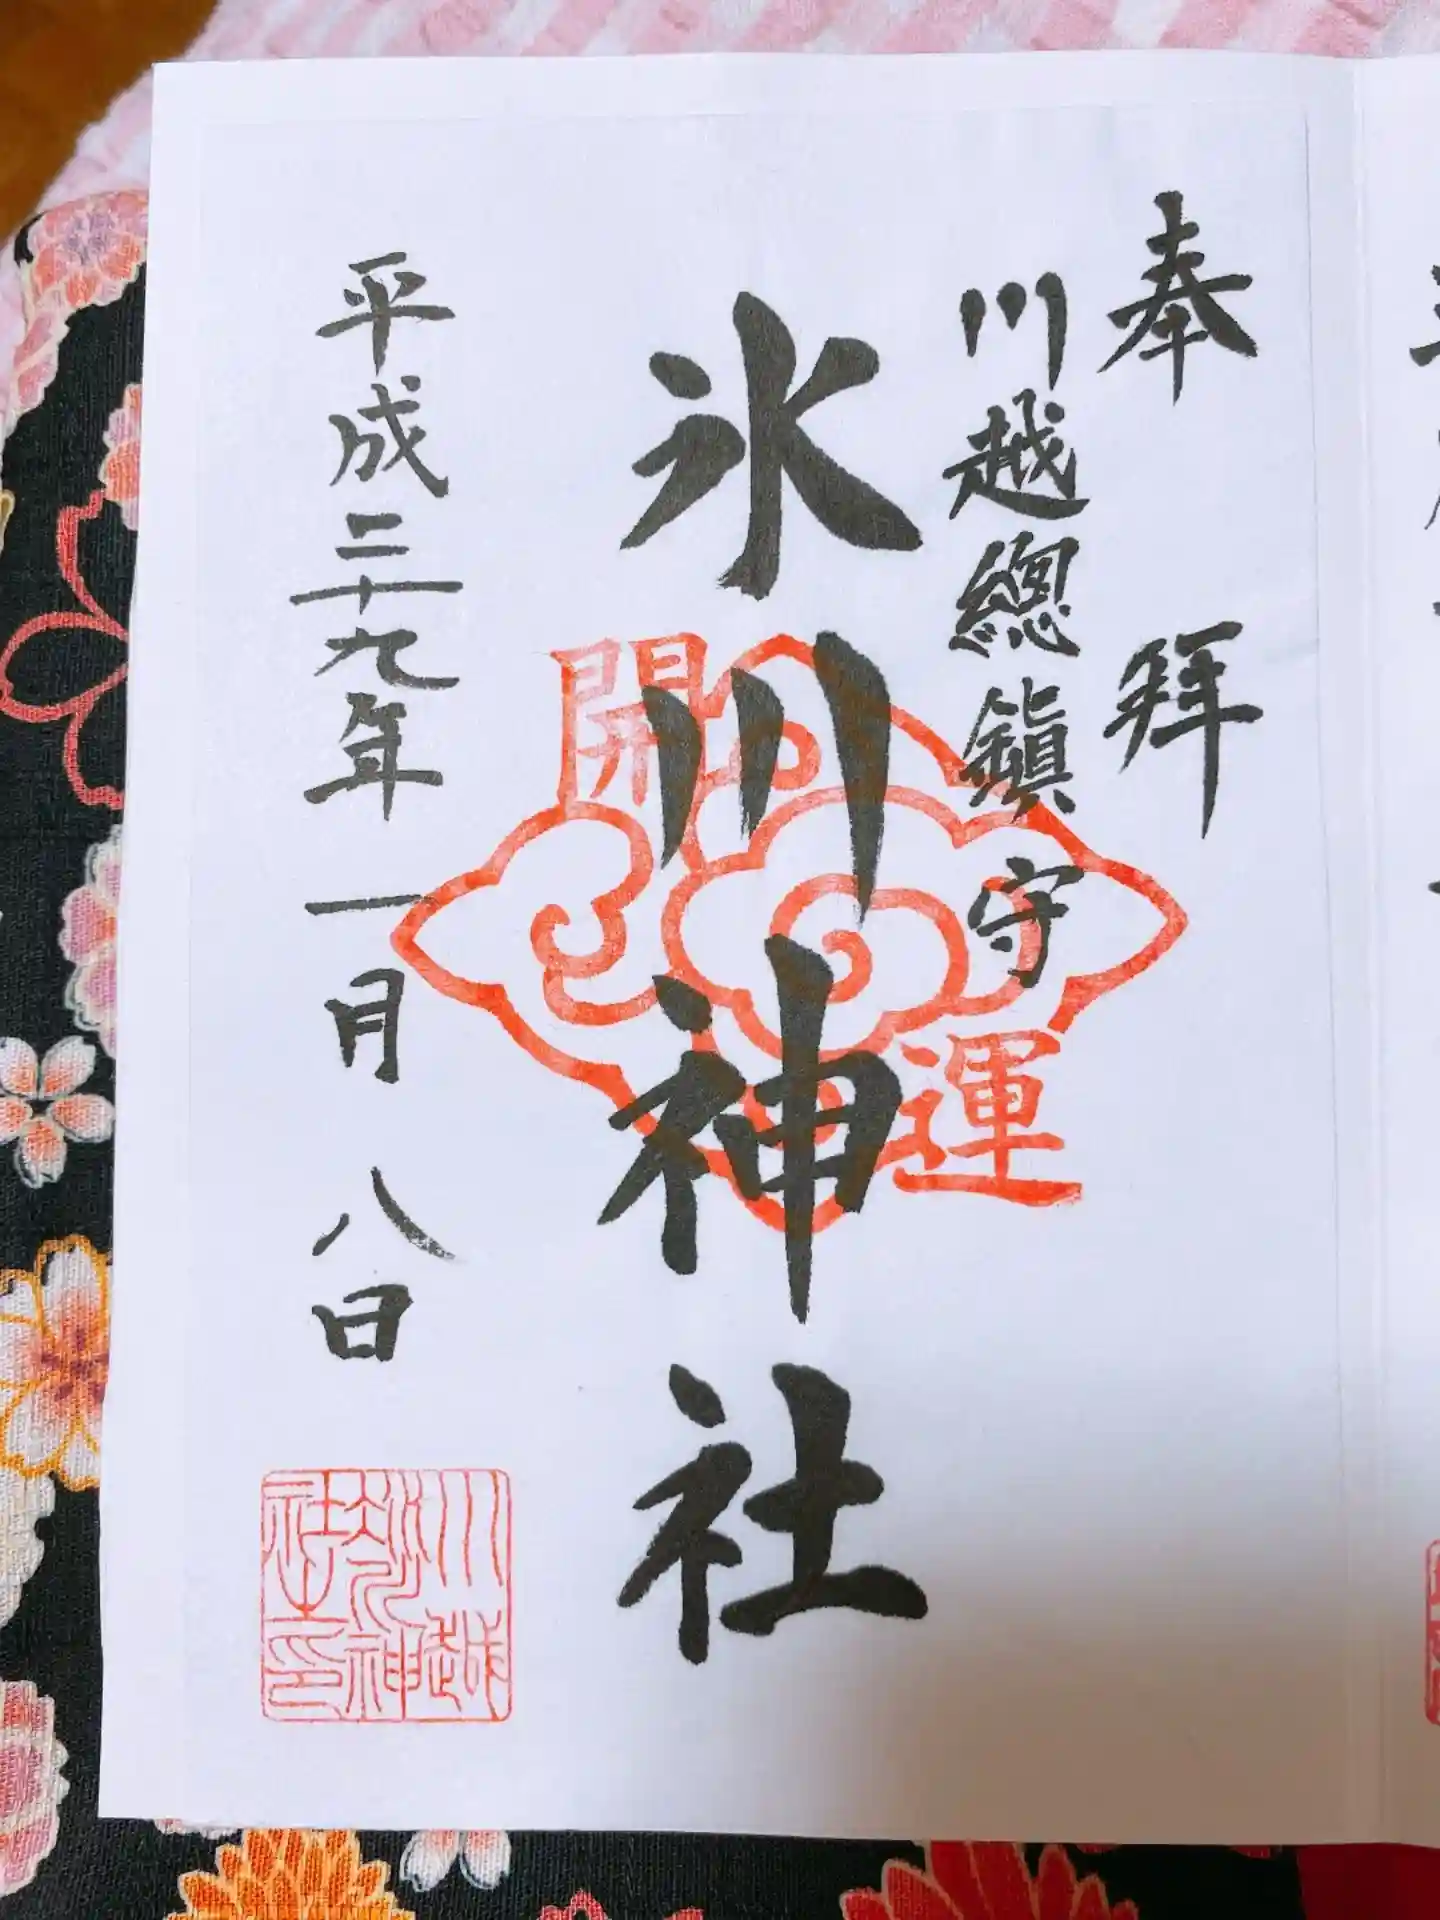 奉拝
川越總鎮守
氷川神社
開運
平成二十九年一月八日
川越
氷川神
社之印